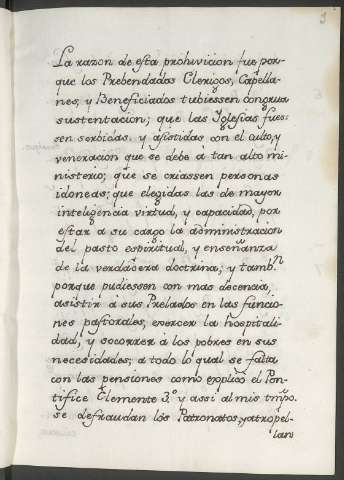 3
La razon de esta prohivicion fue por-
que los Prebendados Clerigos, Capella-
nes, y Beneficiados tubiessen congrua
sustentacion; que las Yglesias fues-
sen serbidas, y asistidas con el culto, y
veneracion que se debe à tan alto mi-
nisterio; que se criassen personas
idoneas; que elegidas las de mayor
inteligencia virtud, y capacidad, por
estar a su cargo la administracion
del pasto espiritual, y enseñanza
de la verdadera doctrina; y tamb.n
porque pudiessen con mas decencia,
asistir à sus Prelados en las funcio-
nes pastorales, exercer la hospitali-
dad, y socorrer a los pobres en sus
necesidades; a todo lo qual se falta
con las pensiones como explicò el Pon-
tifice Clemente 3.º y assi al mis.º tmpo.
se defraudan los Patronatos, y atropel-
lan